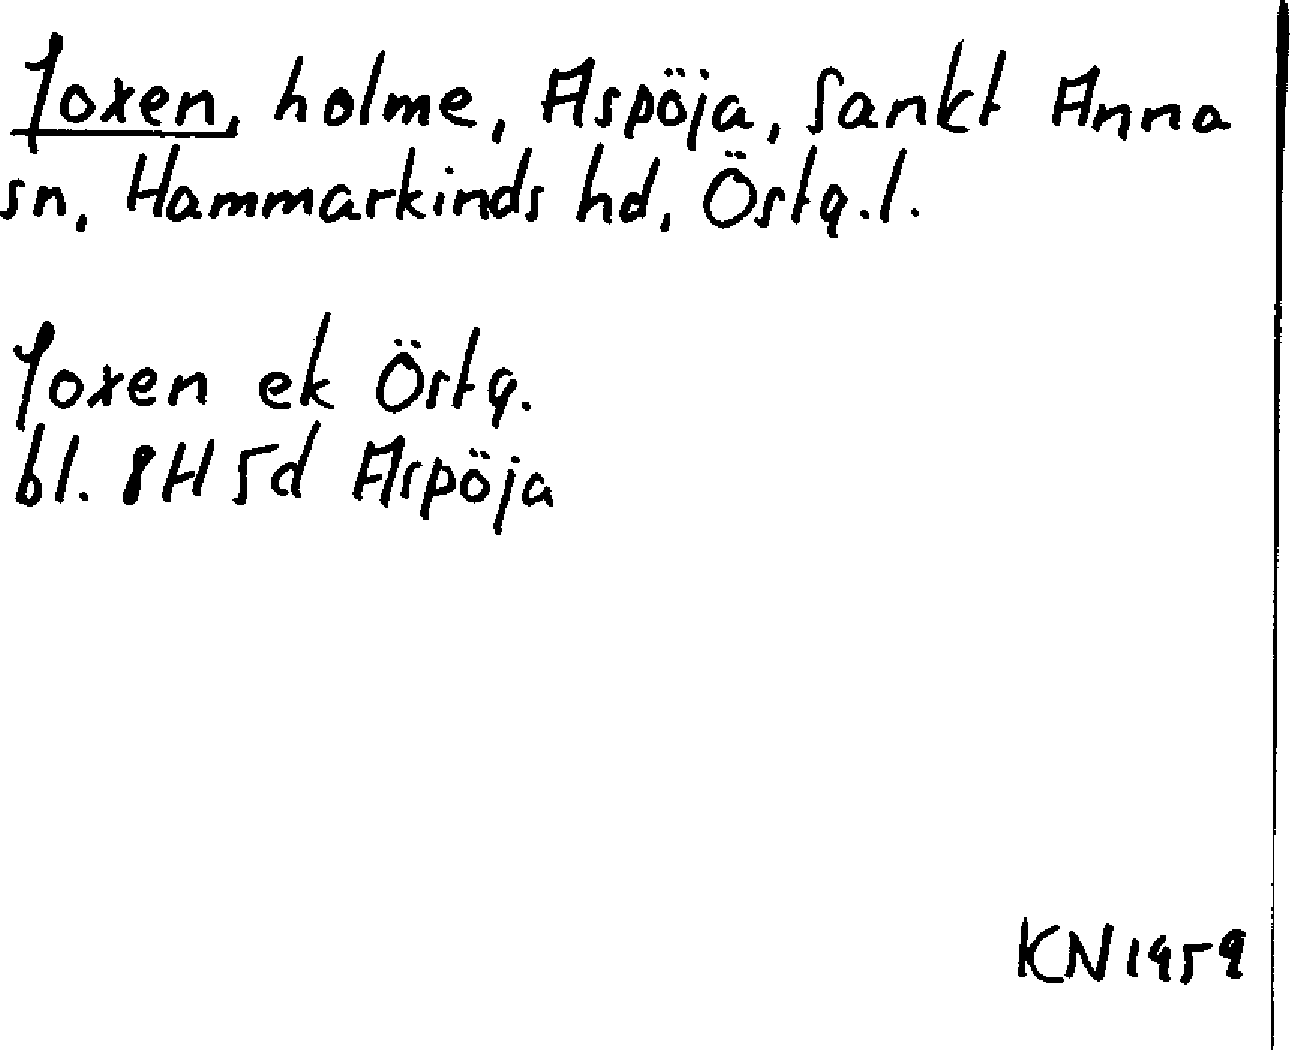 Joxen, holme, Aspöja, Sankt Anna
sn, Hammarkinds hd, Östg.l.
Joxen ek Östg.
bl. 8H5d Aspöja
KN 1959